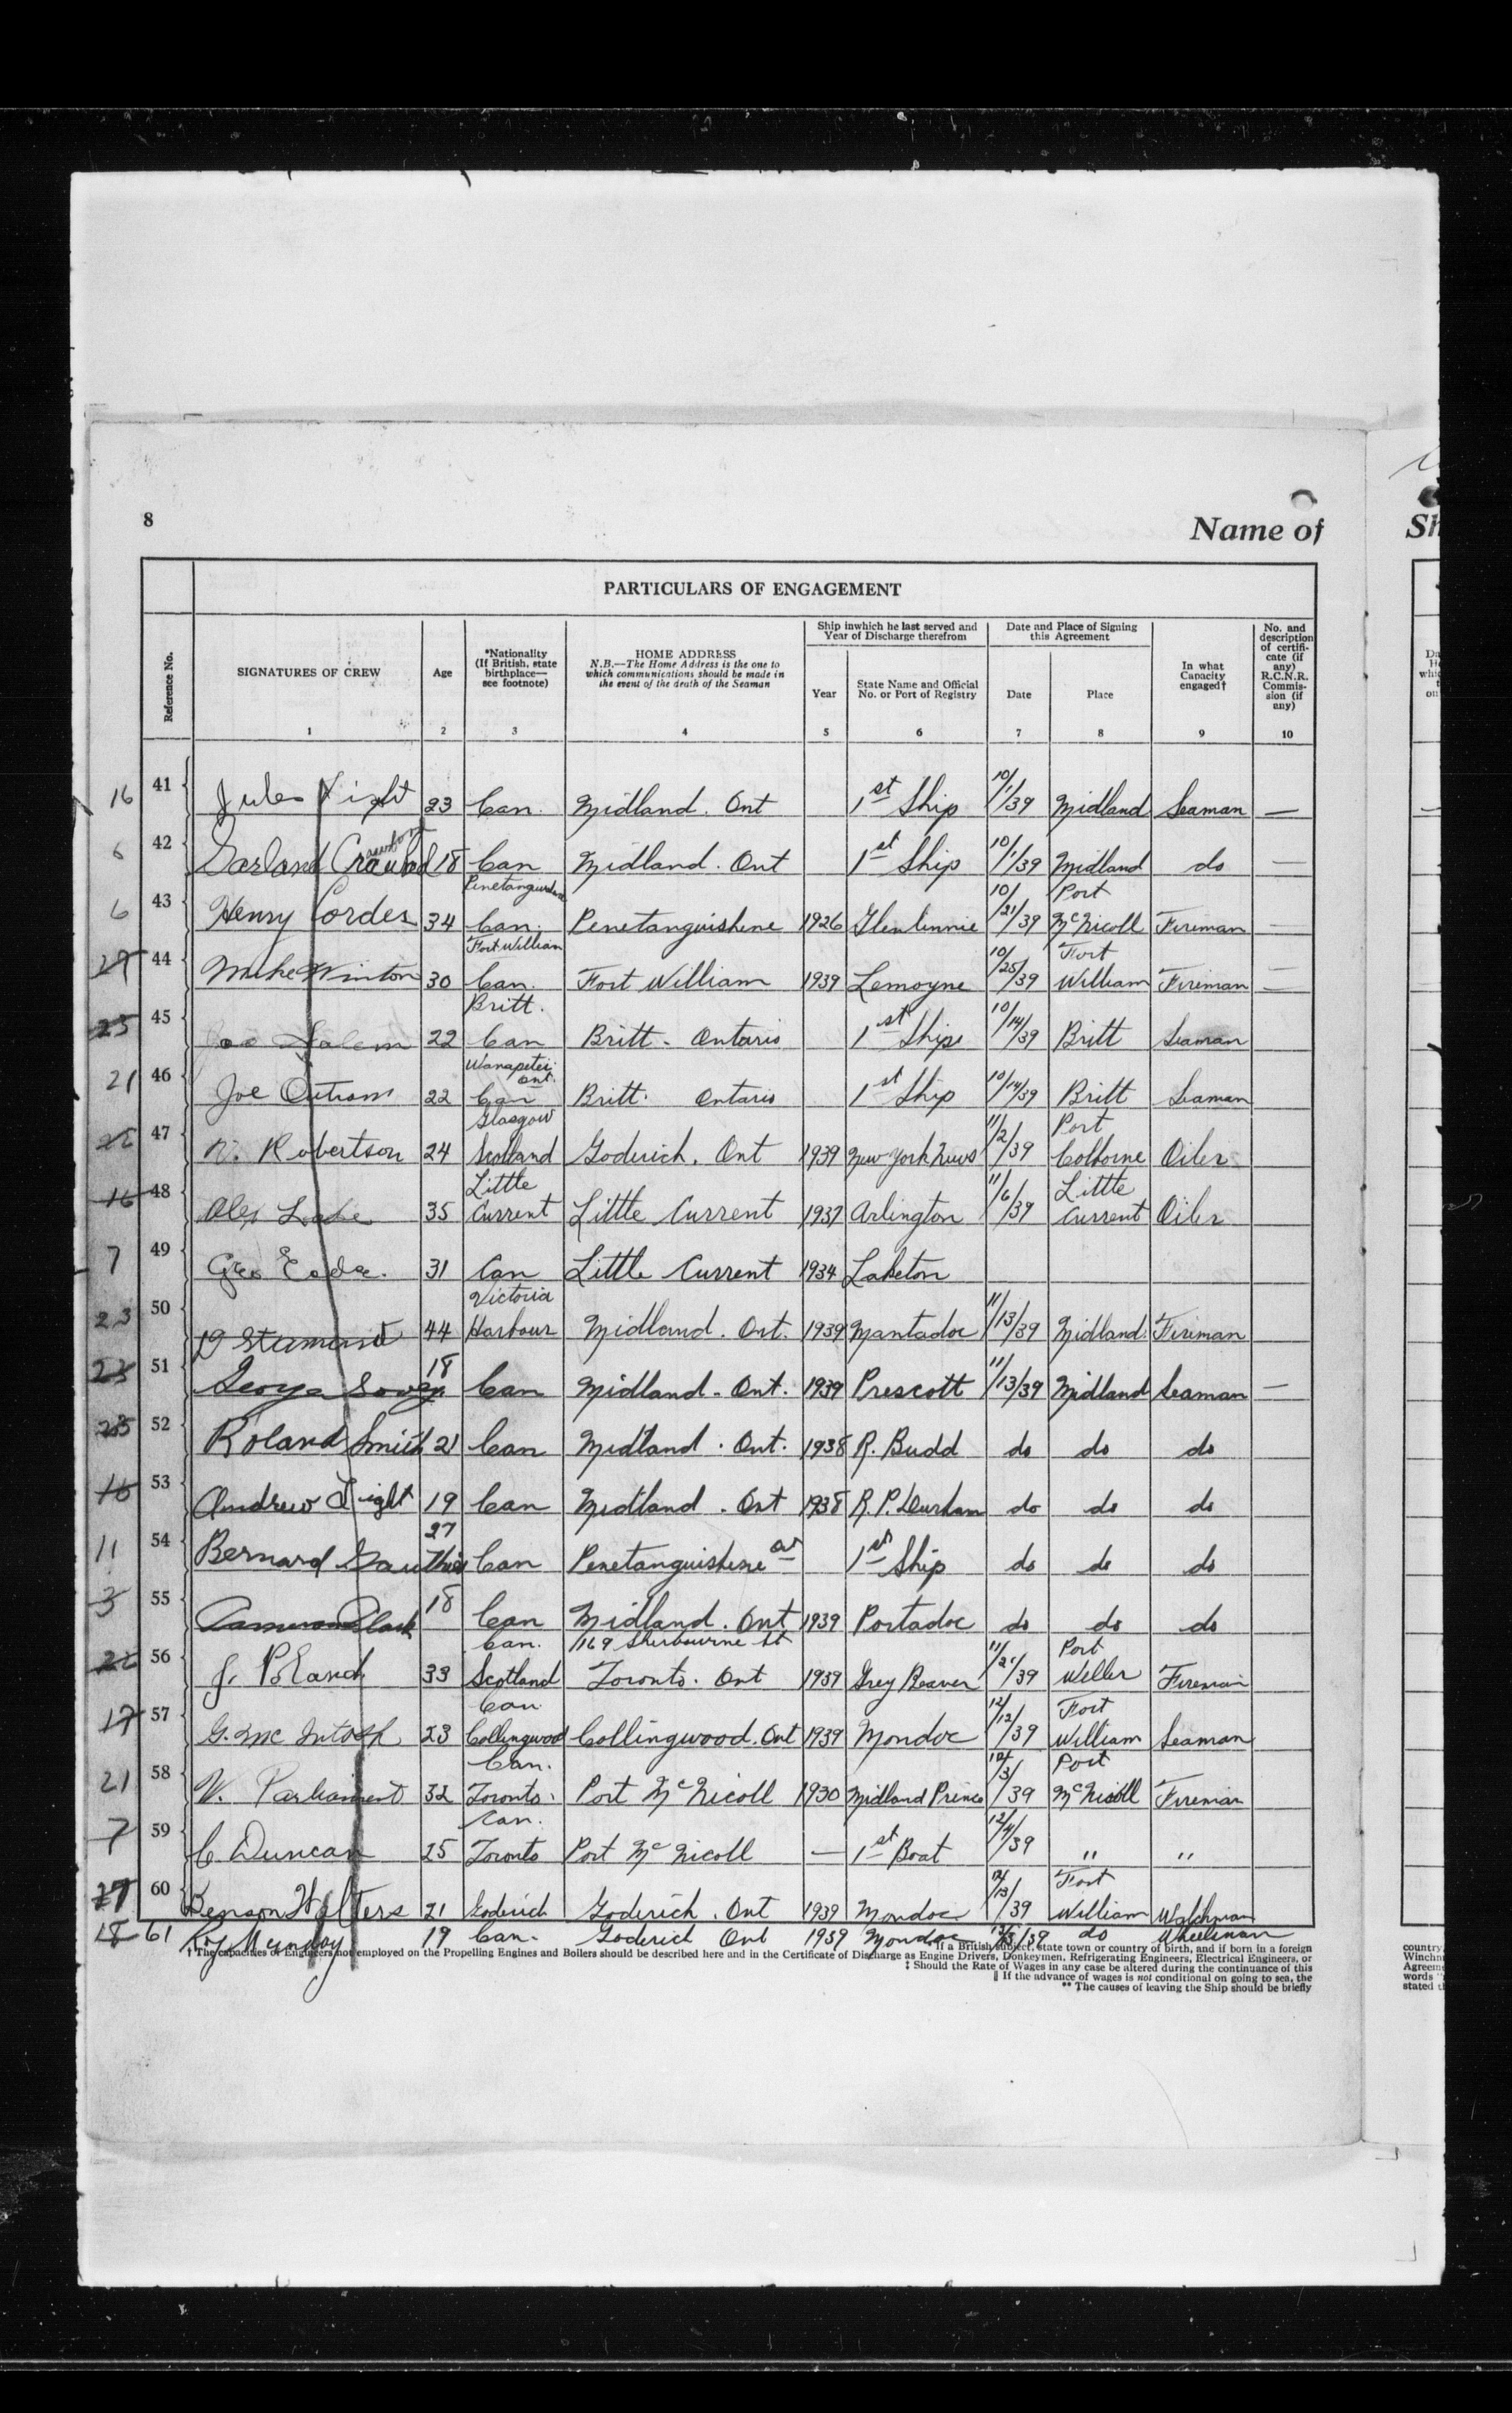 8
Name of
Sh
PARTICULARS OF ENGAGEMENT
Reference No.
SIGNATURES OF CREW
Age
*Nationality
(If British, state
birthplace—
see footnote)
HOME ADDRESS
N.B.—The Home Address is the one to
which communications should be made in
the event of the death of the Seaman
Ship inwhich he last served and
Year of Discharge therefrom
Year
State Name and Official
No. or Port of Registry
Date and Place of Signing
this Agreement
Date
Place
In what
Capacity
engaged†
No. and
description
of certifi-
cate (if
any)
R.C.N.R.
Commis-
sion (if
any)
1 2 3 4 5 6 7 8 9 10
16 41 Jules 23 Can. Midland. Ont 1st Ship 10/1/39 Midland Seaman —
6 42 Garland Crawford 18 Can Midland. Ont 1st Ship 10/1/39 Midland do —
6 43 Henry Cordes 34 Penetanguishene Can. Penetanguishene 1926 Glenlinnie 10/21/39 Port McNicoll Fireman —
29 44 Mike Winton 30 Fort William Can. Fort William 1939 Lemoyne 10/25/39 Fort William Fireman —
25 45 Joe Salem 22 Britt. Can Britt - Ontario 1st Ship 10/14/39 Britt Seaman
21 46 Joe Outram 22 Wanapetei Ont. Can Britt. Ontario 1st Ship 10/14/39 Britt Seaman
47 W. Robertson 24 Glasgow Scotland Goderich. Ont 1939 New York News 11/2/39 Port Colborne Oiler
16 48 Alex 35 Little Current Little Current 1937 Arlington 11/6/39 Little Current Oiler
7 49 Geo Eade. 31 Can Little Current 1934 Laketon
23 50 44 Victoria Harbour Midland. Ont. 1939 Mantadoc 11/13/39 Midland. Fireman
23 51 George 18 Can Midland - Ont. 1939 Prescott 11/13/39 Midland Seaman —
52 Roland Smith 21 Can Midland. Ont. 1938 R. Budd do do do
16 53 Andrew 19 Can Midland. Ont 1938 R.P. Durham do do do
11 54 Bernard Gauthier 27 Can Penetanguishene 1st Ship do do do
3 55 Cameron Black 18 Can Midland. Ont 1939 Portadoc do do do
56 J. Poland 33 Can. Scotland 169 Sherbourne St Toronto. Ont 1939 Grey Beaver 11/21/39 Port Weller Fireman
17 57 G. McIntosh 23 Can Collingwood Collingwood. Ont 1939 Mondoc 12/12/39 Fort William Seaman
21 58 W. Parliament 32 Can. Toronto. Port McNicoll 1930 Midland Prince 12/3/39 Port McNicoll Fireman
7 59 C. Duncan 25 Can. Toronto Port McNicoll — 1st Boat 12/4/39 " "
27 60 Benson Wolters 21 Goderich Goderich. Ont 1939 Mondoc 12/13/39 Fort William Watchman
18 61 Munday 19 Can. Goderich Ont 1939 Mondoc 12/13/39 do Wheelman
* If a British subject, state town or country of birth, and if born in a foreign
† The capacities of Engineers not employed on the Propelling Engines and Boilers should be described here and in the Certificate of Discharge as Engine Drivers, Donkeymen, Refrigerating Engineers, Electrical Engineers, or
‡ Should the Rate of Wages in any case be altered during the continuance of this
|| If the advance of wages is not conditional on going to sea, the
** The causes of leaving the Ship should be briefly
country
Winchm
Agreeme
words "
stated t